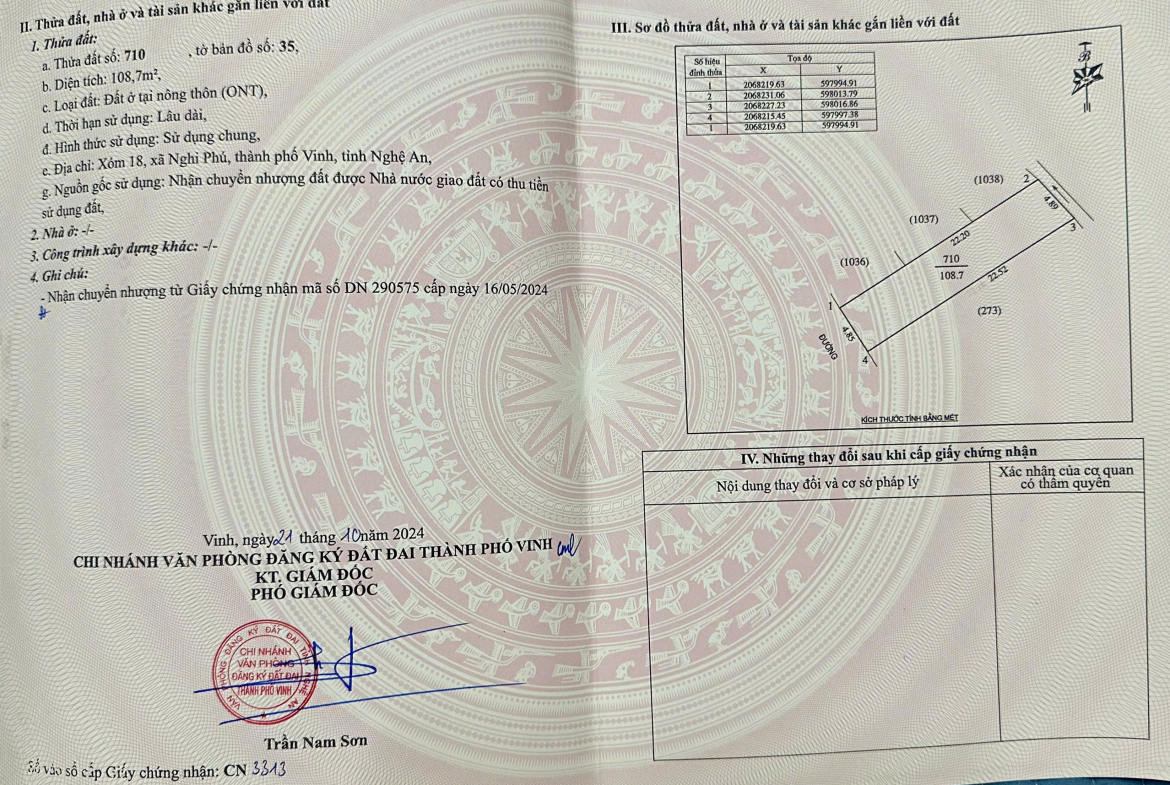 II. Thửa đất, nhà ở và tài sản khác gắn liền với đất
1. Thửa đất:
a. Thửa đất số: 710 , tờ bản đồ số: 35,
b. Diện tích: 108,7m²,
c. Loại đất: Đất ở tại nông thôn (ONT),
d. Thời hạn sử dụng: Lâu dài,
đ. Hình thức sử dụng: Sử dụng chung,
e. Địa chỉ: Xóm 18, xã Nghi Phú, thành phố Vinh, tỉnh Nghệ An,
g. Nguồn gốc sử dụng: Nhận chuyển nhượng đất được Nhà nước giao đất có thu tiền
sử dụng đất,
2. Nhà ở: -/-
3. Công trình xây dựng khác: -/-
4. Ghi chú:
- Nhận chuyển nhượng từ Giấy chứng nhận mã số DN 290575 cấp ngày 16/05/2024
Vinh, ngày 21 tháng 10 năm 2024
CHI NHÁNH VĂN PHÒNG ĐĂNG KÝ ĐẤT ĐAI THÀNH PHỐ VINH
KT. GIÁM ĐỐC
PHÓ GIÁM ĐỐC
VĂN PHÒNG ĐĂNG KÝ ĐẤT ĐAI TỈNH NGHỆ AN
CHI NHÁNH
VĂN PHÒNG
ĐĂNG KÝ ĐẤT ĐAI
THÀNH PHỐ VINH
Trần Nam Sơn
Số vào sổ cấp Giấy chứng nhận: CN 3313
III. Sơ đồ thửa đất, nhà ở và tài sản khác gắn liền với đất
Số hiệu đỉnh thửa Tọa độ
X Y
1 2068219.63 597994.91
2 2068231.06 598013.79
3 2068227.23 598016.86
4 2068215.45 597997.38
1 2068219.63 597994.91
B
(1038)
2
4.89
3
(1037)
22.20
(1036)
710
108.7
22.52
(273)
1
4.85
4
ĐƯỜNG
KÍCH THƯỚC TÍNH BẰNG MÉT
IV. Những thay đổi sau khi cấp giấy chứng nhận
Nội dung thay đổi và cơ sở pháp lý
Xác nhận của cơ quan
có thẩm quyền